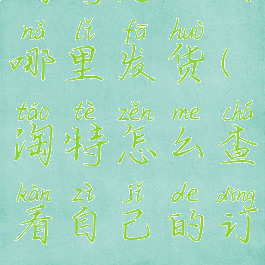 nǎ lǐ fā huò
哪里发货(
táo tè zěn me chá
淘特怎么查
kàn zì jǐ de dìng
看自己的订